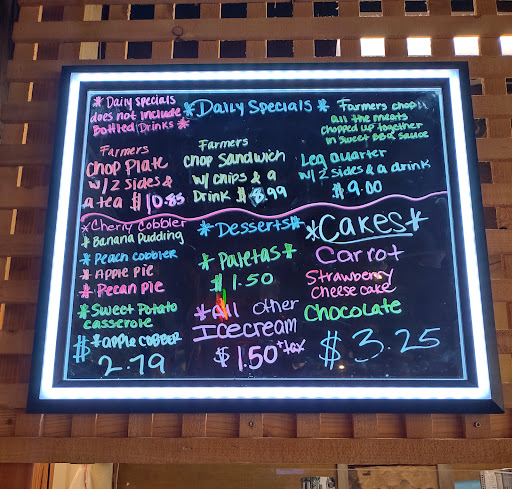 * Daily specials
does not include
Bottled Drinks *
* Daily Specials *
Farmers chop!!
all the meats
chopped up together
in sweet BBQ sauce
Farmers
chop Plate
w/2 sides &
a tea $10.85
Farmers
chop Sandwich
w/ chips & a
Drink $8.99
Leg quarter
w/2 sides & a drink
$9.00
* Cherry cobbler
* Banana Pudding
* Peach cobbler
* Apple Pie
* Pecan Pie
* Sweet Potato
casserole
* apple cobbler
$2.79
* Desserts *
* Paletas *
$1.50
* All other
Icecream
$1.50 + tax
* Cakes *
Carrot
Strawberry
Cheesecake
Chocolate
$3.25